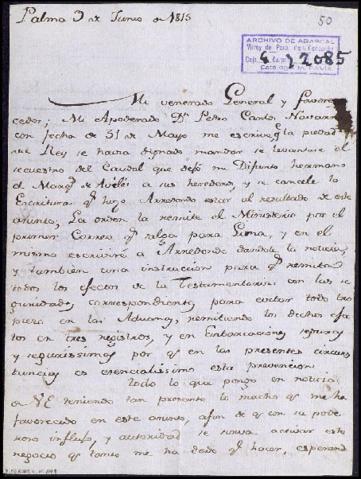 Palma 3 de Junio de 1815
50
ARCHIVO DE ABASCAL
Virrey de Perú
2085
Mi venerado General y favore
cedor; Mi Apoderado Dn Pedro Canto, Navarro
con fecha de 31 de Mayo me escrive, q. la piedad
del Rey se havia dignado mandar se levantase el
sequestro del Caudal que dejó mi Difunto hermano
el Marqs de Avilés a sus herederos, y se cancele la
Escritura q. hizo Arredondo estar al resultado de este
asunto; La orden la remite el Ministerio por el
primer Correo q. salga para Lima, y en el
mismo escriviré a Arredondo dandole la noticia,
y tambien una instruccion para q. remita
todos los efectos de la Testamentaria con las se
guridades correspondientes, para evitar todo tro
piezo en las Aduanas, remitiendo los dichos efec
tos en tres registros, y en Embarcaciones seguras
y segurissimos por q. en las presentes circuns
tancias es esencialissimo esta prevencion.
Todo lo que pongo en noticia
de VE teniendo tan presente lo mucho q. me ha
favorecido en este asunto, afin de q. con su pode
roso influjo, y autoridad se sirva activar este
negocio q. tanto me ha dado q. hacer, esperando